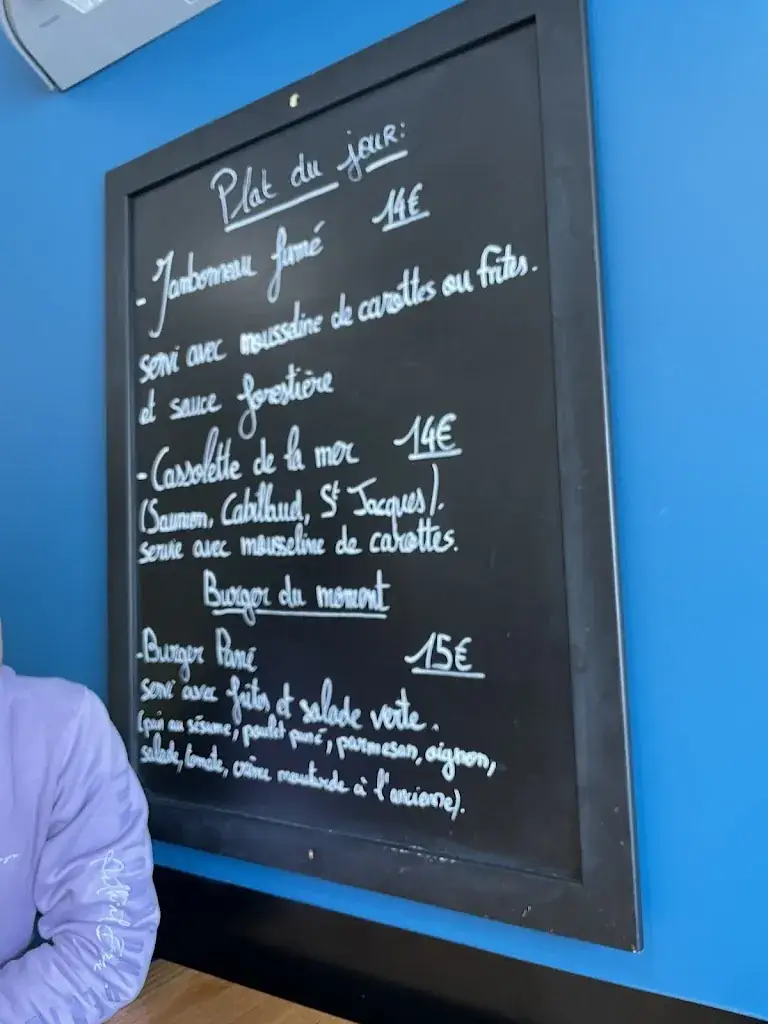 Plat du jour:
- Jambonneau fumé 14€
servi avec mousseline de carottes ou frites.
et sauce forestière
- Cassolette de la mer 14€
(Saumon, Cabillaud, St Jacques).
servie avec mousseline de carottes.
Burger du moment
- Burger Pané 15€
servi avec frites et salade verte.
(pain au sésame, poulet pané, parmesan, oignon,
salade, tomate, crème moutarde à l'ancienne).